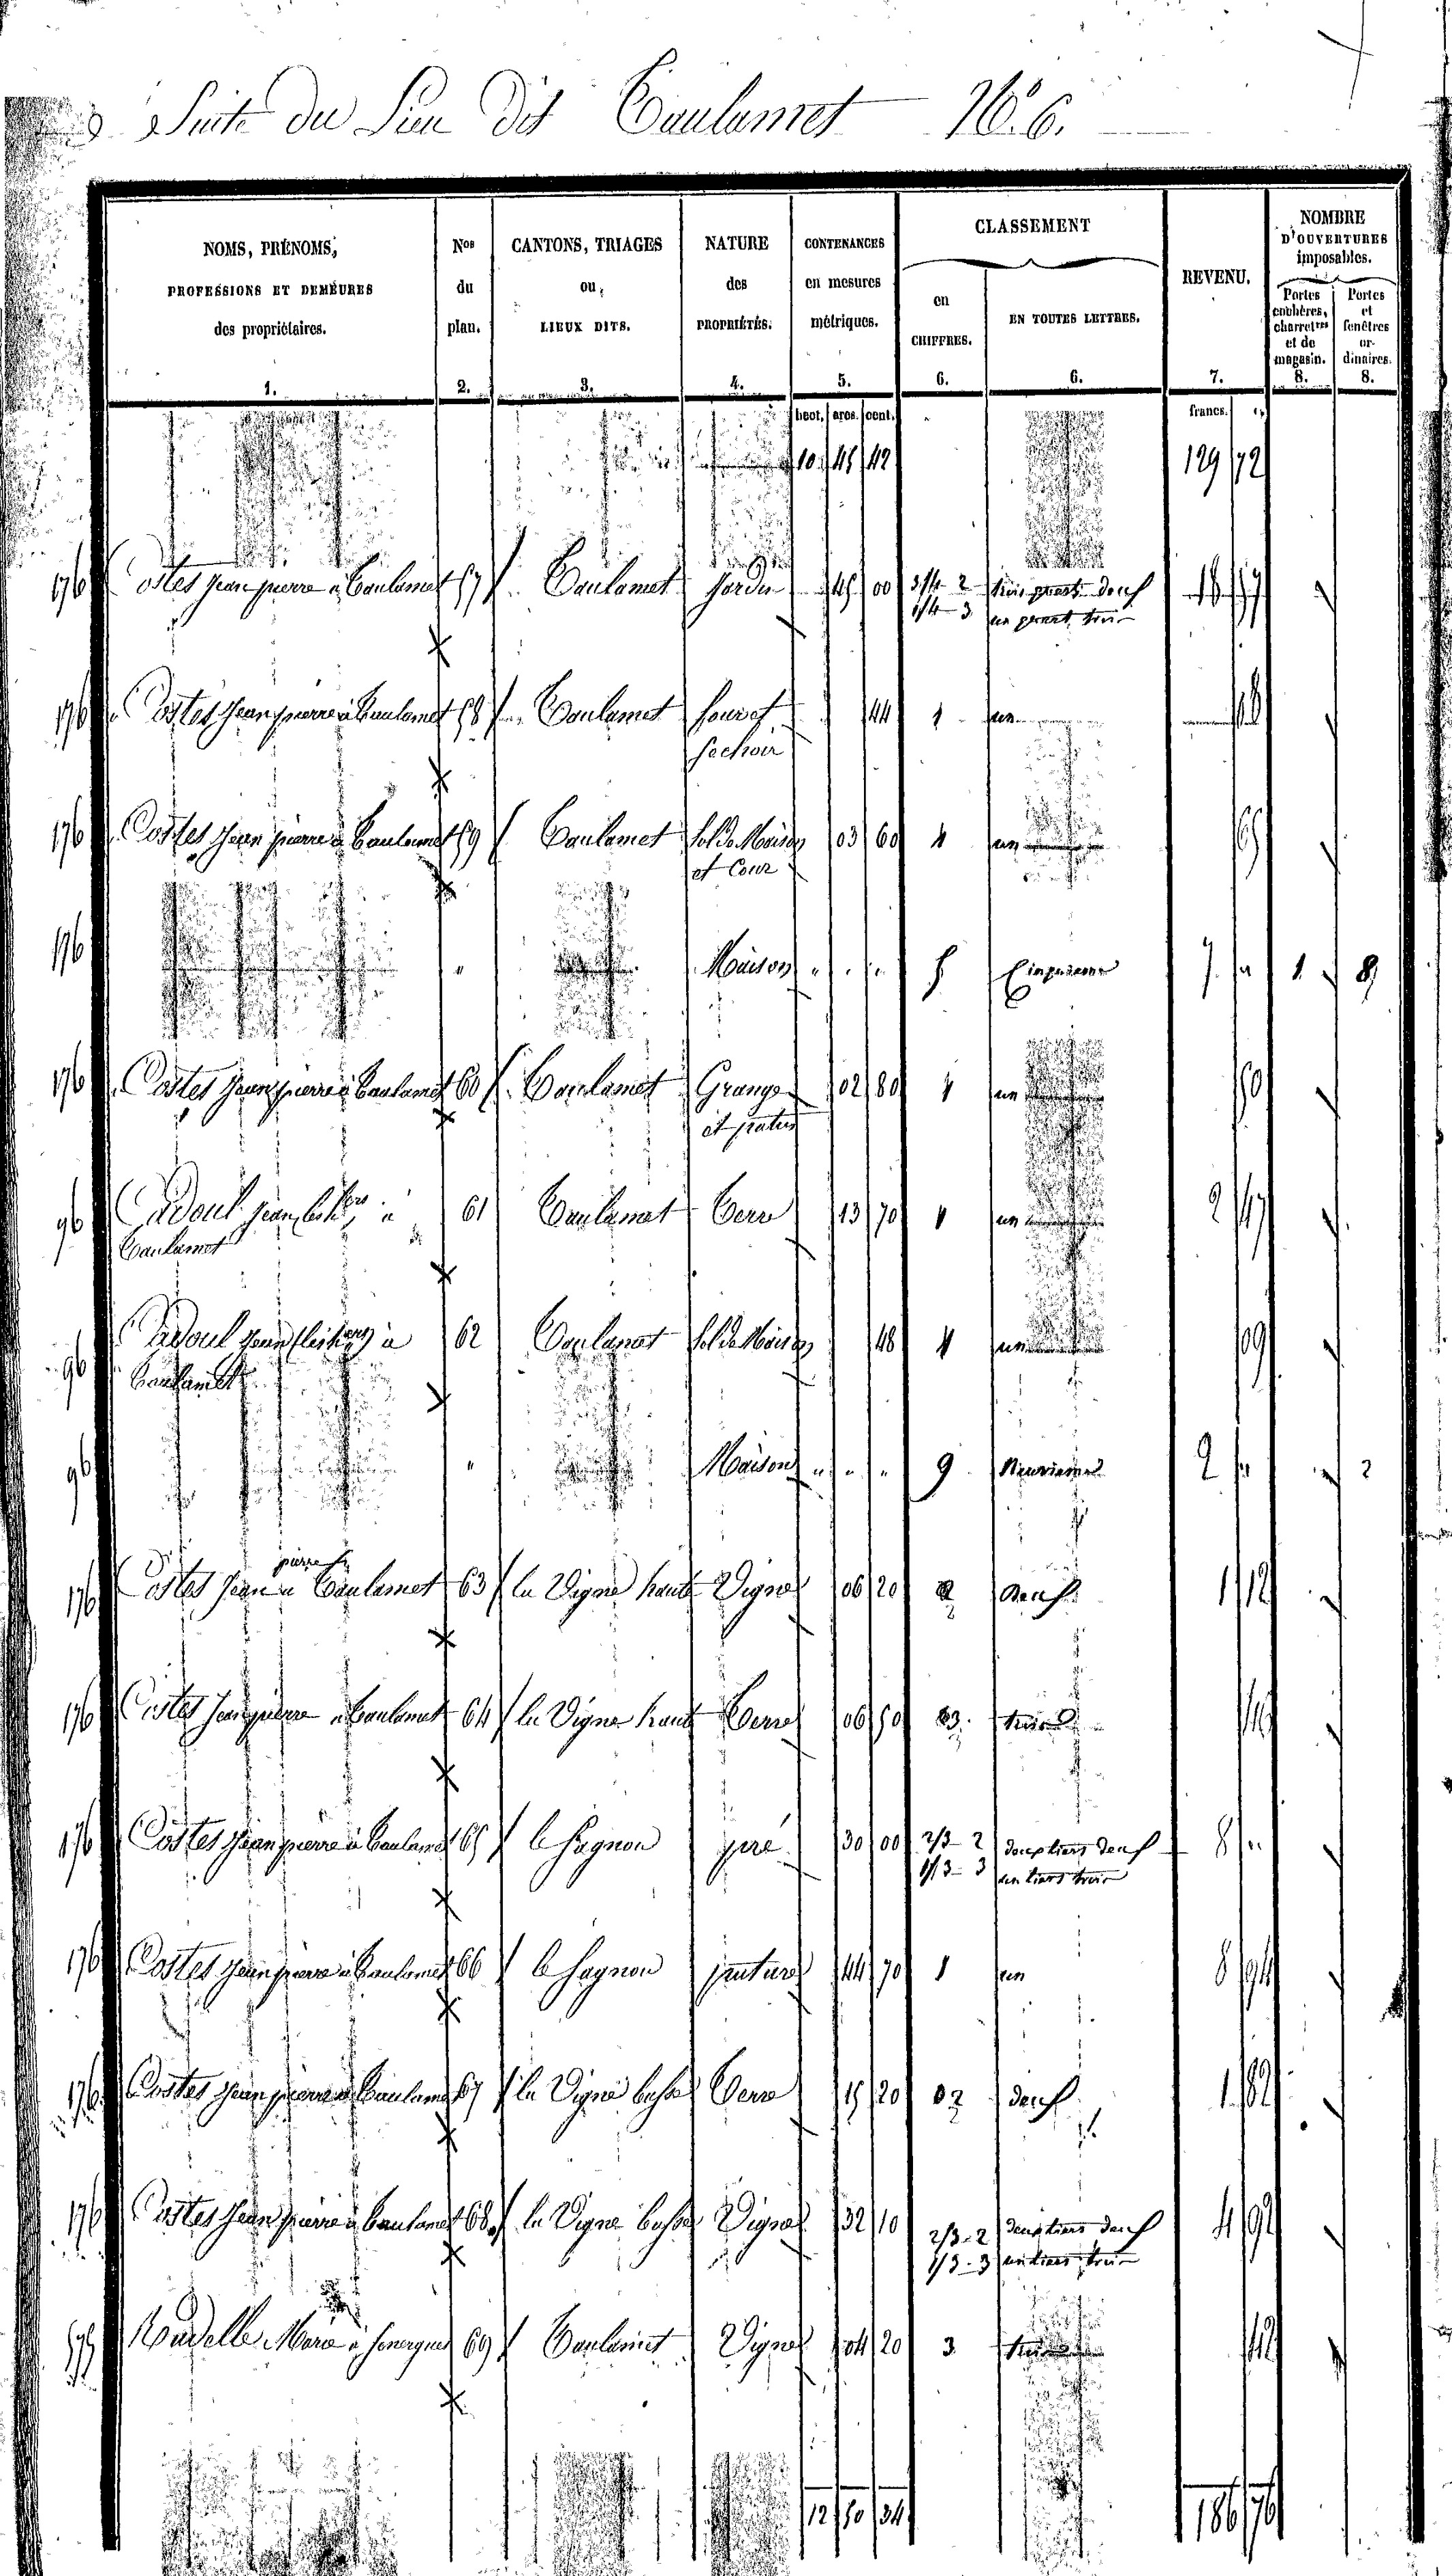 Suite du Lieu Dit Caulamet N.º 6.
NOMS, PRÉNOMS, PROFESSIONS ET DEMEURES des propriétaires. 1.
Nos du plan. 2.
CANTONS, TRIAGES ou, LIEUX DITS. 3.
NATURE des PROPRIÉTÉS. 4.
CONTENANCES en mesures métriques. 5.
CLASSEMENT
en CHIFFRES. 6.
EN TOUTES LETTRES. 6.
REVENU. 7.
NOMBRE D'OUVERTURES imposables.
Portes cochères, charretres et de magasin. 8.
Portes et fenêtres ordinaires. 8.
hect. ares. cent. francs.
10 45 42 129 72
176 Costes Jean pierre à Caulamet 57 Caulamet Jardin 45 00 3/4 2 trois quarts deux
1/4 3 un quart trois
176 Costes Jean pierre à Caulamet 58 Caulamet four et 44 1 un
Sechoir
176 Costes Jean pierre à Caulamet 59 Caulamet Sol de Maison 03 60 1 un
et Cour
176 " Maison " " " 5 Cinquieme 7 " 1 8
176 Costes Jean pierre à Caulamet 60 Caulamet Grange 02 80 1 un
et patus
96 Jean à 61 Caulamet Terre 13 70 1 un
Caulamet
96 Jean à 62 Caulamet Sol de Maison 48 1 un 09
Caulamet
96 " Maison " " " 9 Neuvieme 2 " " 2
176 Costes Jean pierre à Caulamet 63 la Vigne haute Vigne 06 20 2 deux 1 12
176 Costes Jean pierre à Caulamet 64 la Vigne haute Terre 06 50 3 trois
176 Costes Jean pierre à Caulamet 65 le Sagnon pré 30 00 2/3 2 deux tiers deux 8 "
1/3 3 un tiers trois
176 Costes Jean pierre à Caulamet 66 le Sagnon pature 44 70 1 un 8 94
176 Costes Jean pierre à Caulamet 67 la Vigne basse Terre 15 20 2 deux 1 82
176 Costes Jean pierre à Caulamet 68 la Vigne basse Vigne 32 10 2/3 2 deux tiers deux 4 92
1/3 3 un tiers trois
69 Caulamet Vigne 04 20 3 trois 42
12 50 34 186 76